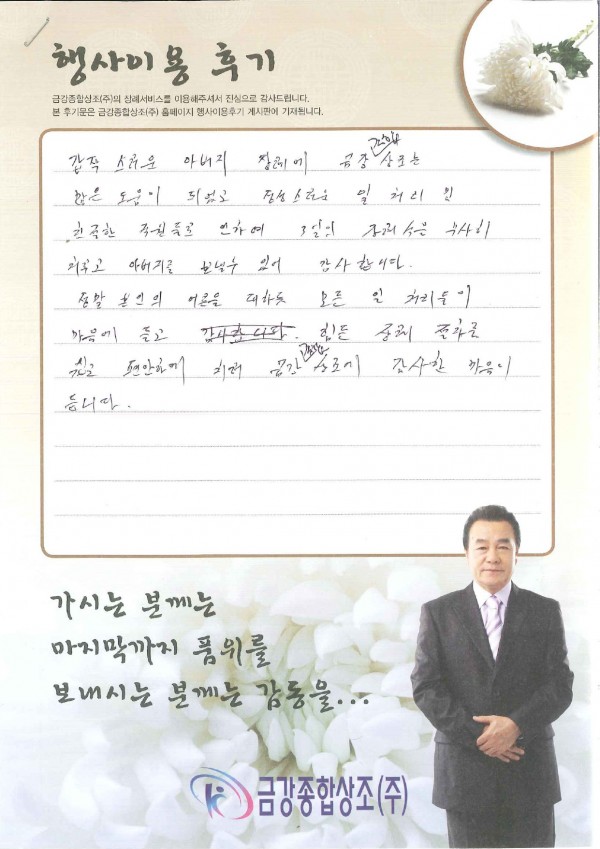 행사이용 후기
금강종합상조(주)의 장례서비스를 이용해주셔서 진심으로 감사드립니다.
본 후기문은 금강종합상조(주) 홈페이지 행사이용후기 게시판에 기재됩니다.
갑작 스러운 아버지 장례에 금강 종합 상조는
많은 도움이 되었고 정성스러운 일 처리 및
친절한 직원들로 인하여 3일의 장례식을 무사히
치루고 아버지를 보낼수 있어 감사합니다.
정말 본인의 어른을 대하듯 모든 일 처리들이
마음에 들고 감사합니다. 힘든 장례 절차를
쉽고 편안하게 치러 금강 종합 상조에 감사한 마음이
듭니다.
가시는 분께는
마지막까지 품위를
보내시는 분께는 감동을...
금강종합상조(주)